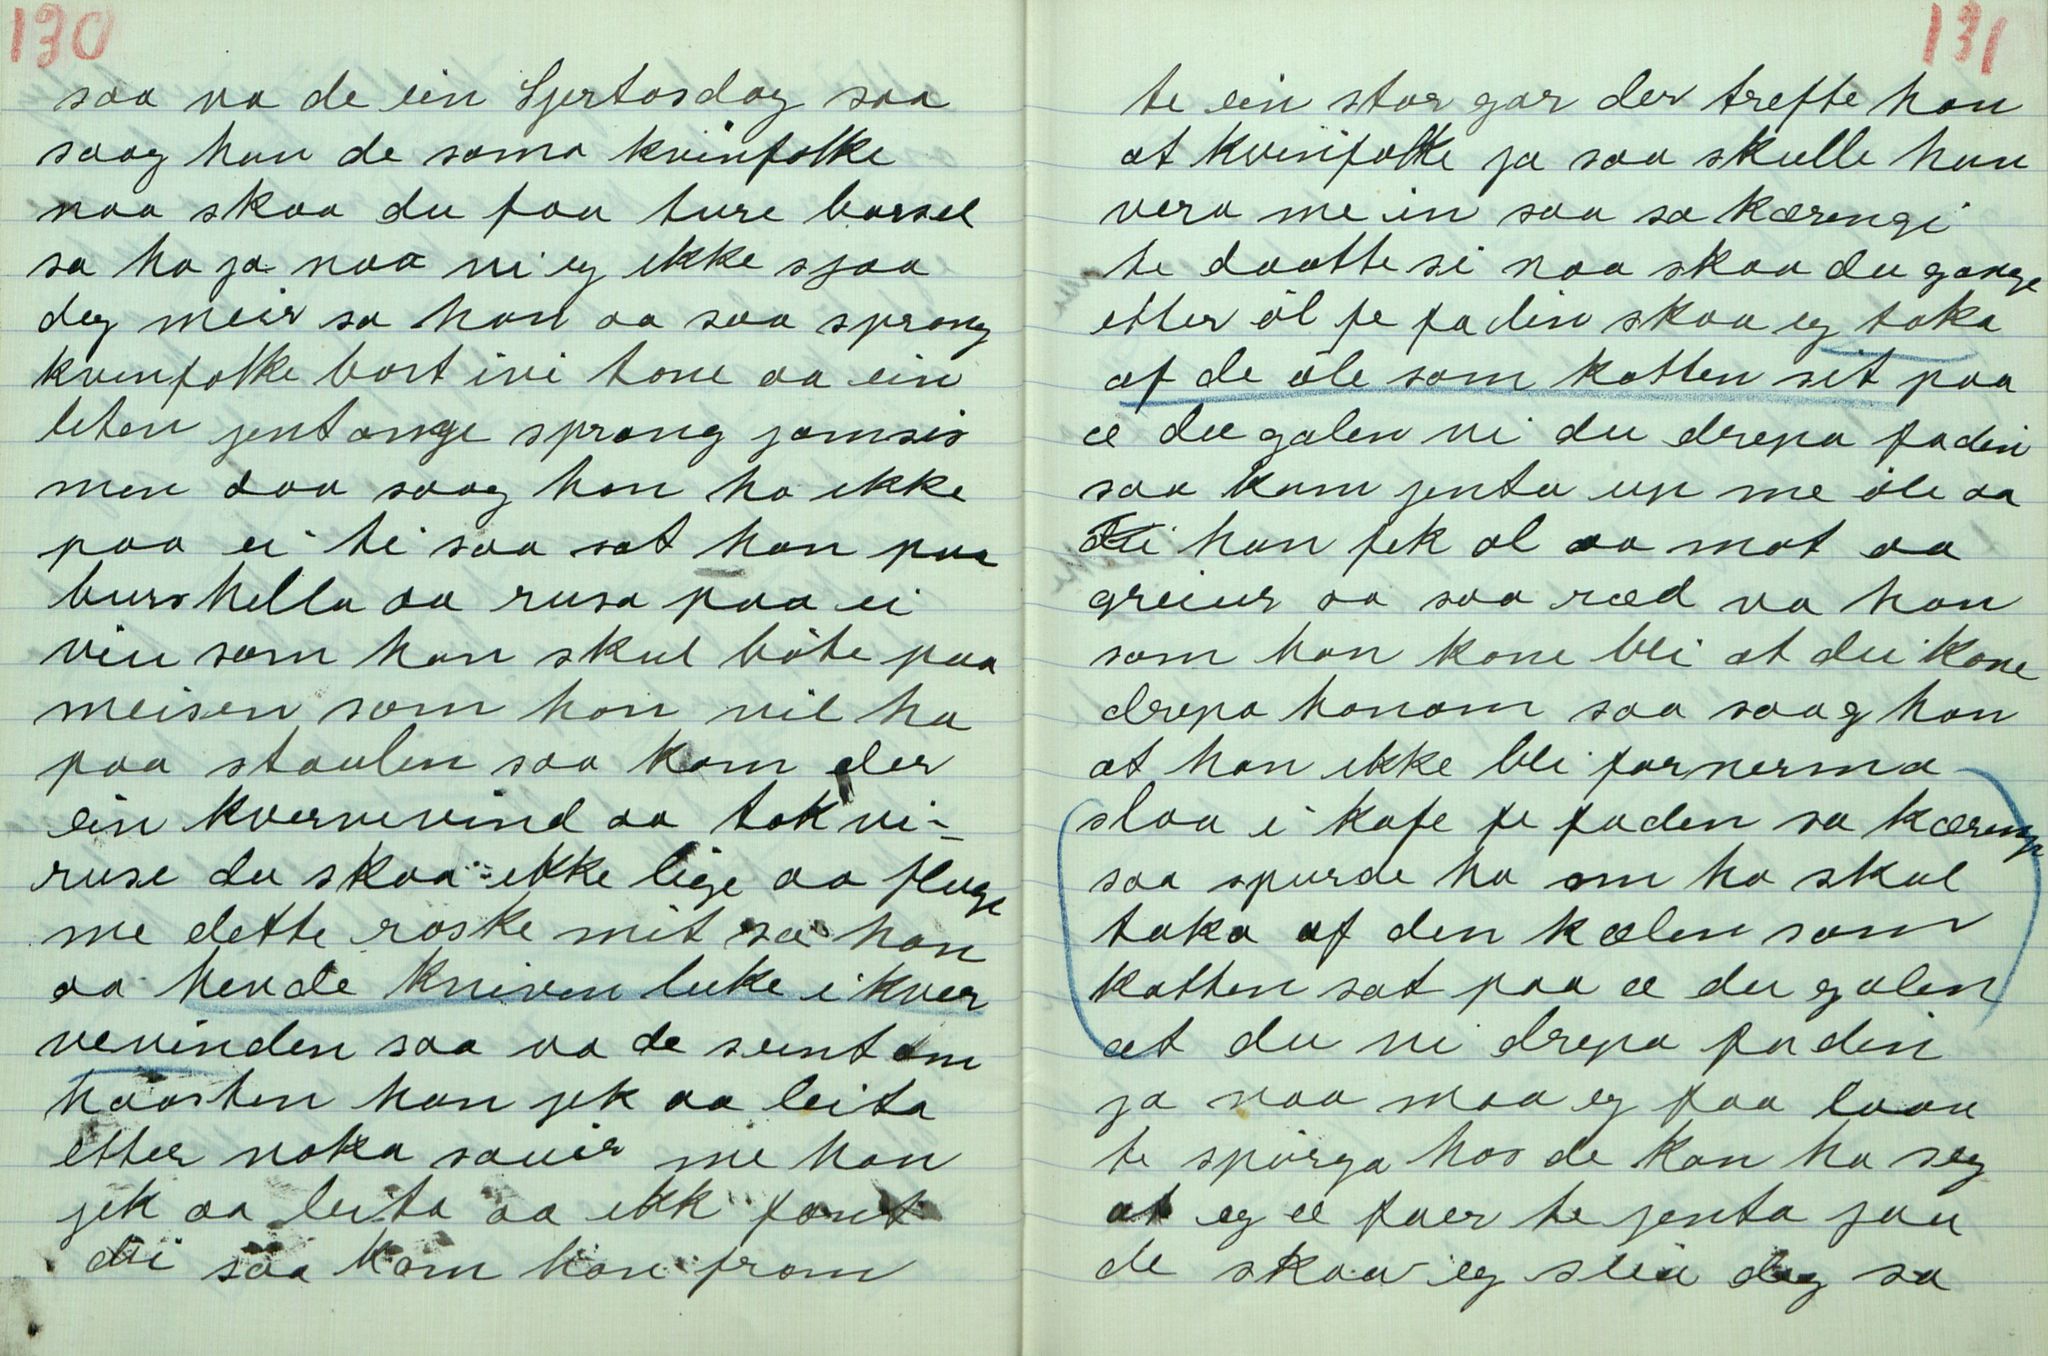 130
saa va de ein Sjertosdag saa
saag han de sama kvinfolke
naa skaa du faa ture barsel
sa ha ja naa vi eg ikke sjaa
deg meir sa han aa saa sprang
kvinfolke bort ivi tone aa ein
liten jentonge sprang jamsis
men daa saag han ha ikke
paa ei ti saa sat han paa
burshella aa rusa paa ei
viu som han skul böte paa
meisen som han vil ha
paa staulen saa kom der
ein kvervevind aa tok vi-
ruse du skaa ikke lige aa fluge
me dette raske mit sa han
aa hende kniven luke i kver
vevinden saa va de seint om
haasten han jek aa leita
etter noka sauir me han
jek aa leita aa ikk fant
dei saa kom han fram
131
te ein stor gar der trefte han
at kvinfolke ja saa skulle han
vera me in saa sa kærengi
te daatte si naa skaa du gange
etter öl fe fa din skaa eg taka
af de öle som katten sit paa
æ du galen vi du drepa fadin
saa kam jenta up me öle aa
han fek öl aa mat aa
greiur sa saa ræd va han
som han kone bli at dei kone
drepa honom saa saag han
at han ikke bli fornerma
slaa i kafe fe faden sa kærengi
saa spurde ha om ha skul
taka af den kælen som
katten sat paa æ du galen
at du vi drepa fadin
ja naa maa eg faa laav
te spörga hos de kan ha seg
at eg æ faer te jenta jau
de skaa eg seia deg sa